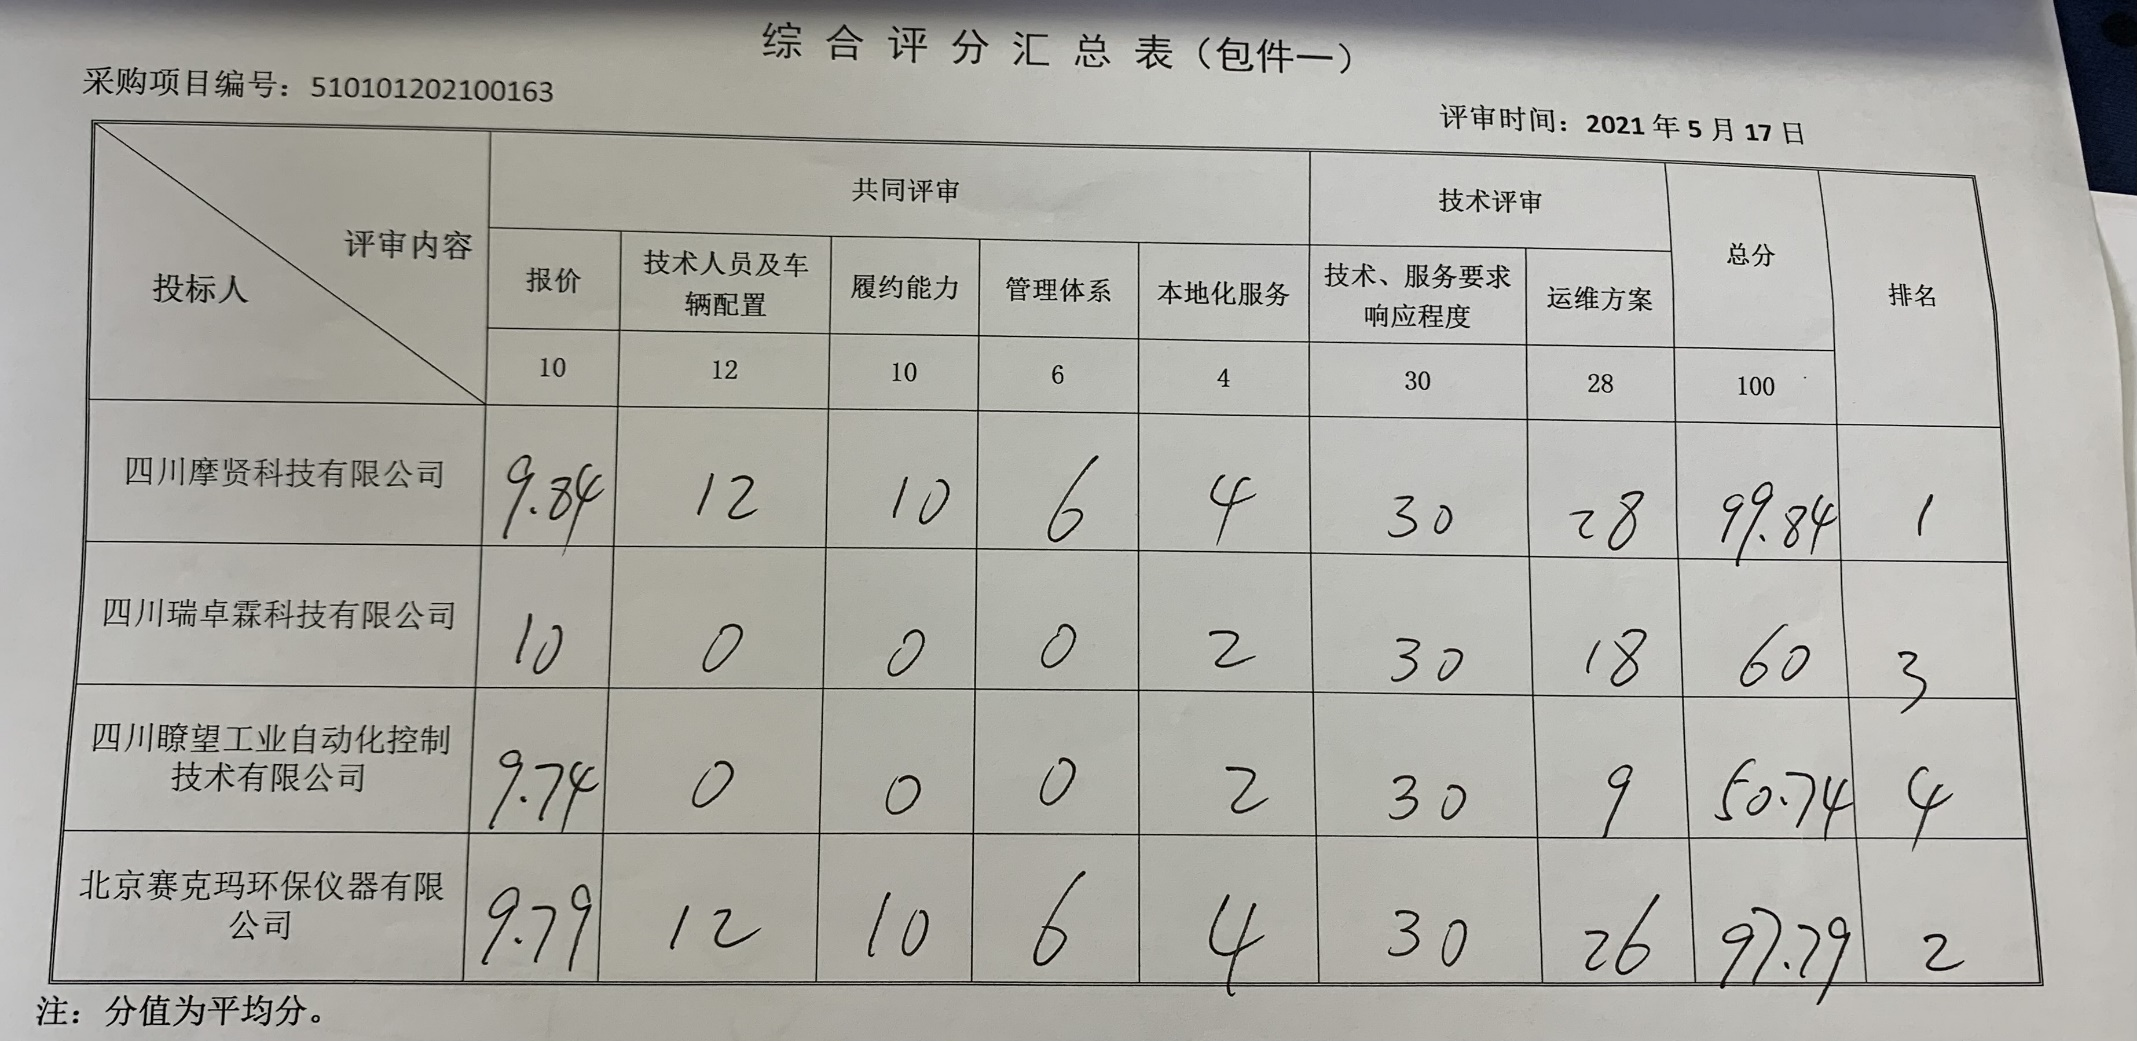 综合评分汇总表（包件一）
采购项目编号：510101202100163
评审时间：2021年5月17日
评审内容
投标人
共同评审
技术评审
总分
排名
报价
技术人员及车
辆配置
履约能力
管理体系
本地化服务
技术、服务要求
响应程度
运维方案
10 12 10 6 4 30 28 100
四川摩贤科技有限公司 9.84 12 10 6 4 30 28 99.84 1
四川瑞卓霖科技有限公司 10 0 0 0 2 30 18 60 3
四川瞭望工业自动化控制
技术有限公司 9.74 0 0 0 2 30 9 50.74 4
北京赛克玛环保仪器有限
公司 9.79 12 10 6 4 30 26 97.79 2
注：分值为平均分。